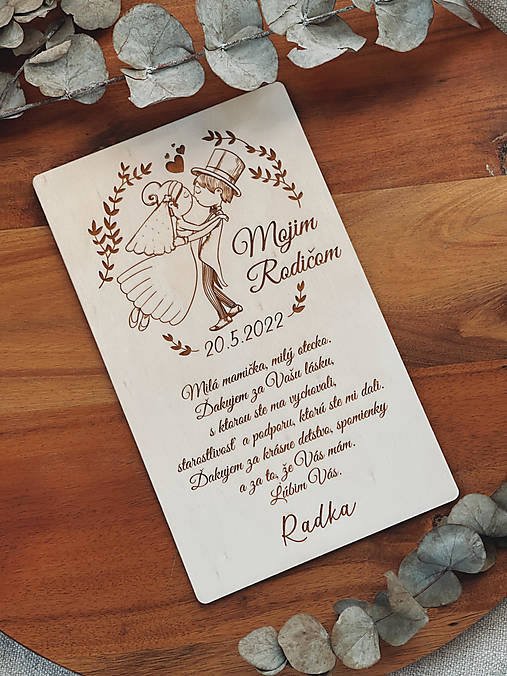 Mojim
Rodičom
20.5.2022
Milá mamička, milý otecko.
Ďakujem za Vašu lásku,
s ktorou ste ma vychovali,
starostlivosť a podporu, ktorú ste mi dali.
Ďakujem za krásne detstvo, spomienky
a za to, že Vás mám.
Ľúbim Vás.
Radka